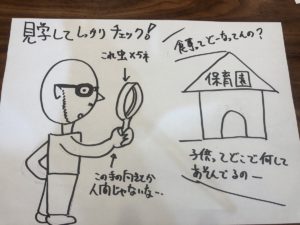 見学してしっかりチェック!
これ虫メガネ
この手の向きとか
人間じゃないな…
食事ってどーなってんの?
保育園
子供ってどこで何して
あそんでるのー